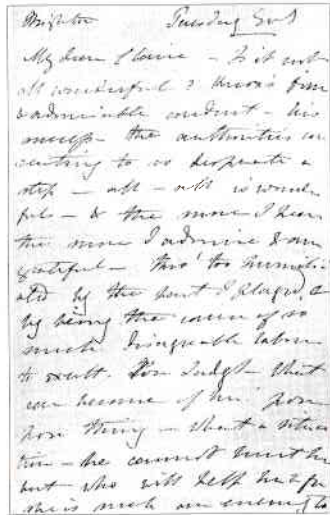 Brighton Tuesday Eve
My dear Claire – Is it not
all wonderful? Knox's firm
& admirable conduct – his
success – the authorities con
senting to so desperate a
step – all – all is wonder
ful – & the more I hear
the more I admire & am
grateful – tho' too humili
ated by the part I played, &
by being the cause of so
much disagreable labour
to exult. Poor – What
can become of her poor
poor thing – what a situa
tion – he cannot hurt her
but who will help her for
she is much an enemy to